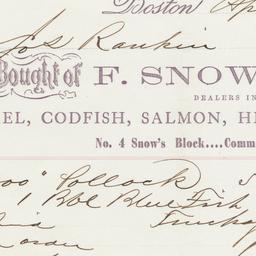 Boston Ap
Jos Rankin
Bought of F. SNOW
DEALERS IN
EL, CODFISH, SALMON, HE
No. 4 Snow's Block....Comm
00 " Pollock
1 Bbl Blue Fish
Truckage